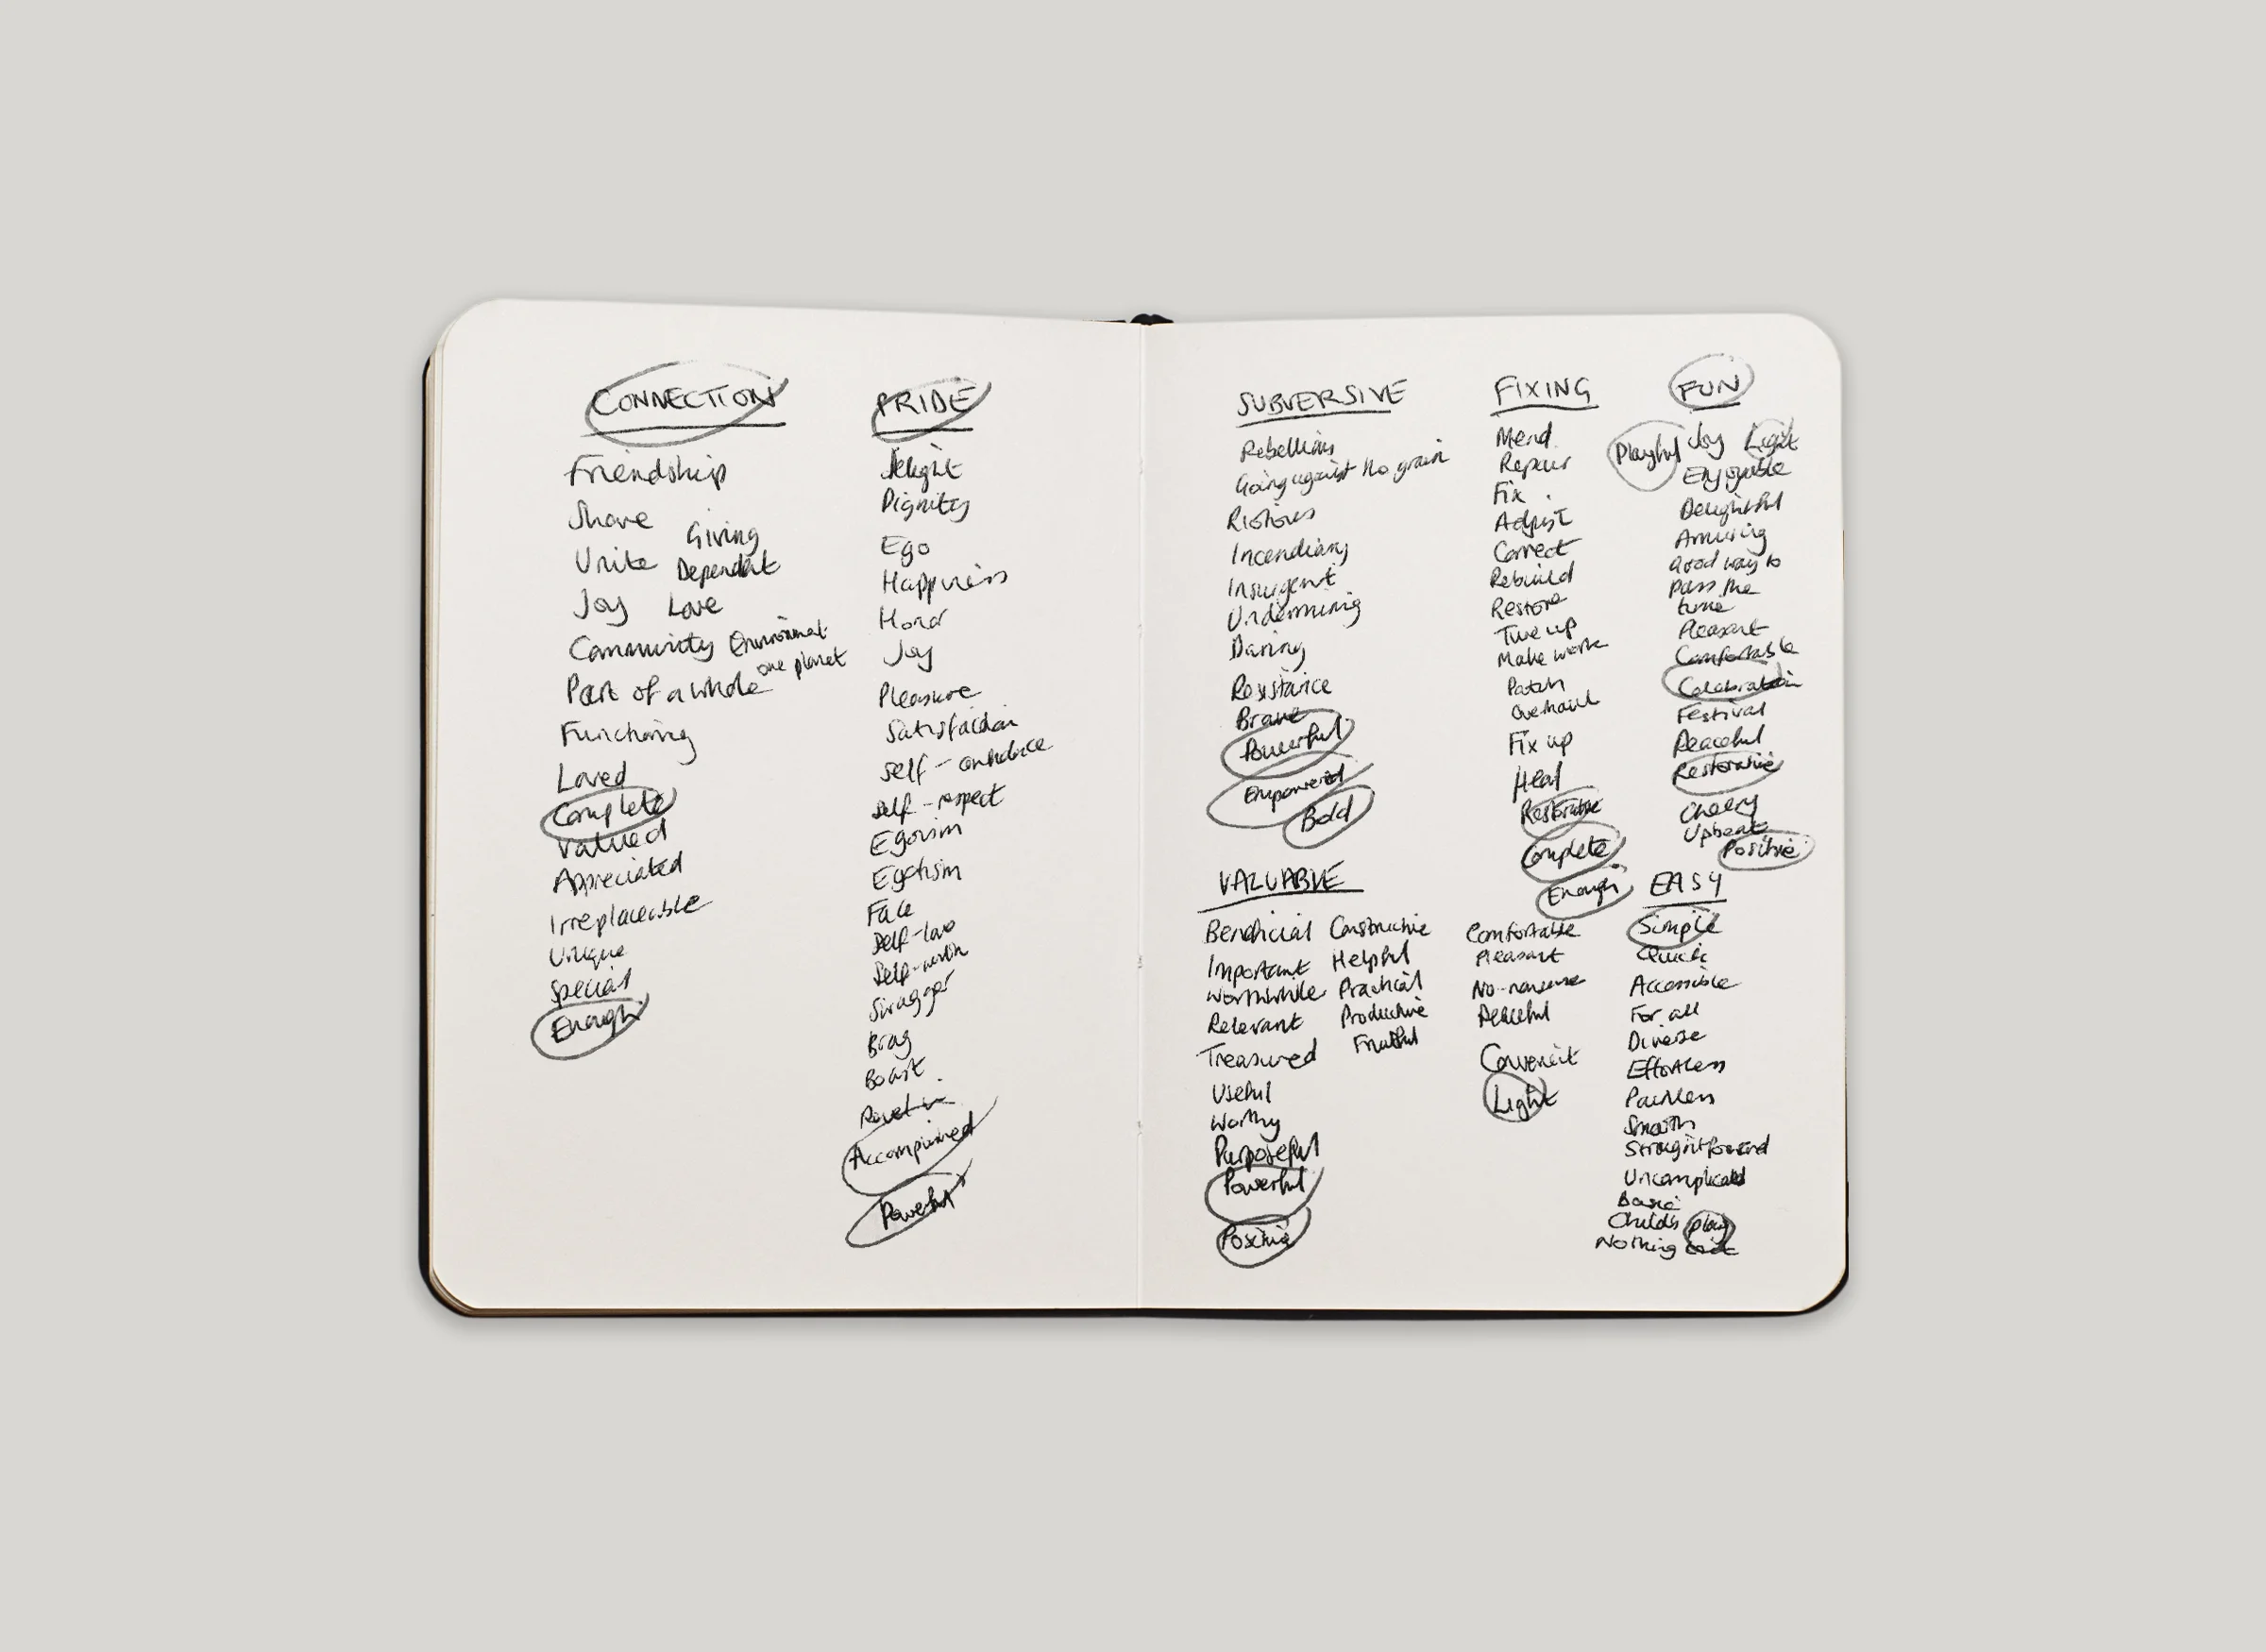 CONNECTION
Friendship
Share
Giving
Unite
Dependent
Joy Love
Community Environment
one planet
Part of a whole
Functioning
Loved
Complete
Valued
Appreciated
Irreplaceable
Unique
Special
Enough
PRIDE
Delight
Dignity
Ego
Happiness
Honor
Joy
Pleasure
Satisfaction
Self-confidence
Self-respect
Egoism
Egotism
Face
Self-love
Self-worth
Swagger
Brag
Boast
Revel in
Accomplished
Powerful
SUBVERSIVE
Rebellious
Going against the grain
Riotous
Incendiary
Insurgent
Undermining
Daring
Resistance
Brave
Powerful
Empowered
Bold
FIXING
Mend
Repair
Fix
Adjust
Correct
Rebuild
Restore
Tune up
Make work
Patch
Overhaul
Fix up
Heal
Restorative
Complete
Enough
FUN
Playful Joy Light
Enjoyable
Delightful
Amusing
Good way to
pass the
time
Pleasant
Comfortable
Celebration
Festival
Peaceful
Restorative
Cheery
Upbeat
Positive
VALUABLE
Beneficial Constructive
Important Helpful
Worthwhile Practical
Relevant Productive
Treasured Fruitful
Useful
Worthy
Purposeful
Powerful
Positive
EASY
Comfortable
Pleasant
No-nonsense
Peaceful
Convenient
Light
Simple
Quick
Accessible
For all
Diverse
Effortless
Painless
Smooth
Straightforward
Uncomplicated
Basic
Child's play
Nothing